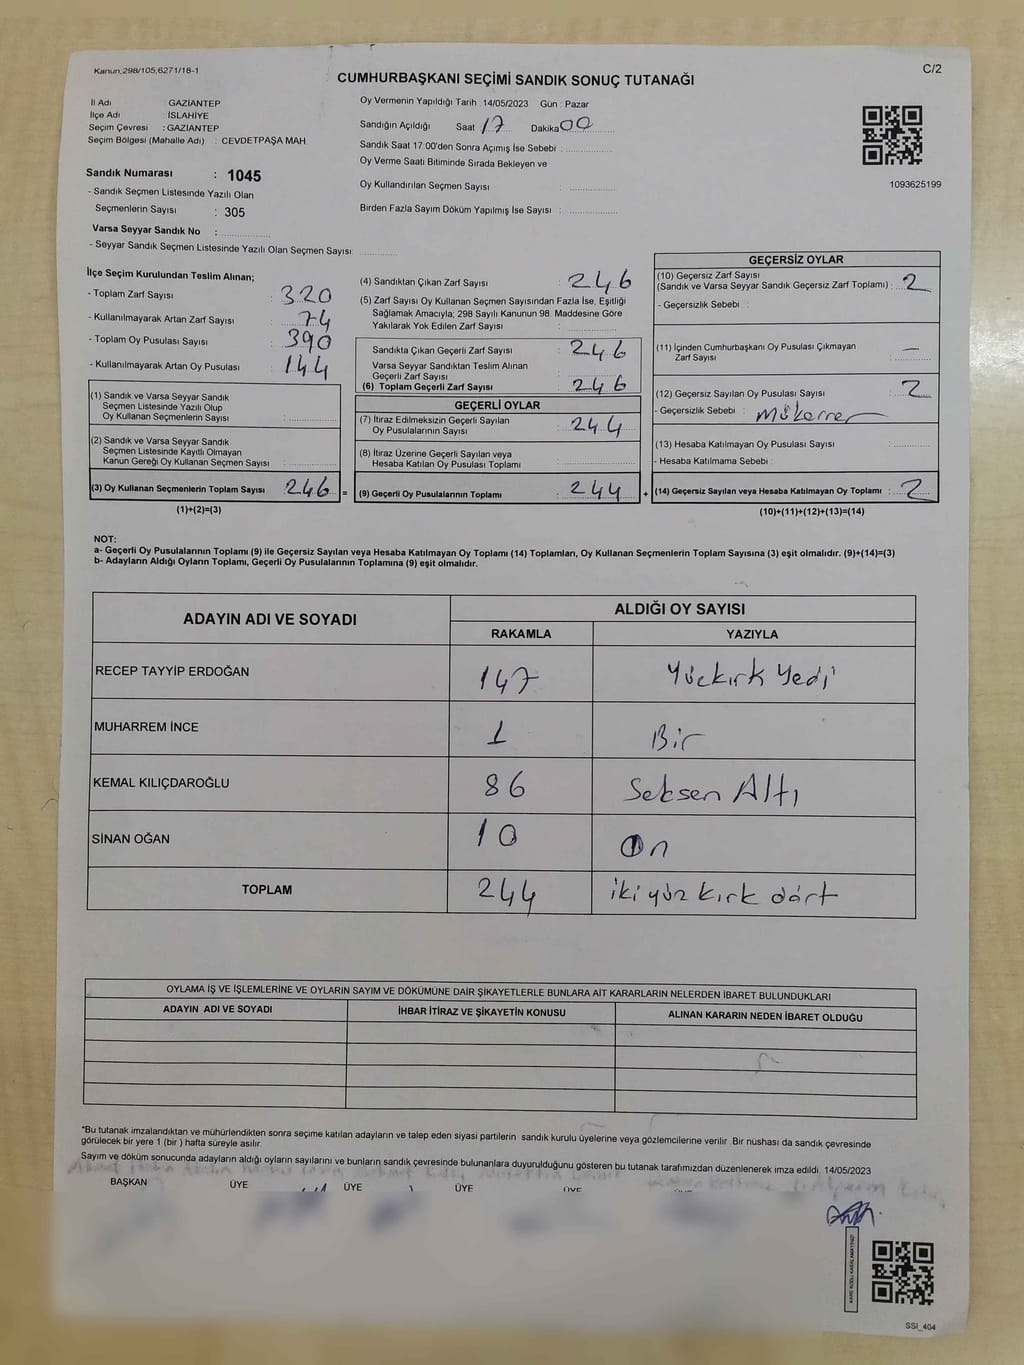 Kanun:298/105,6271/18-1
C/2
CUMHURBAŞKANI SEÇİMİ SANDIK SONUÇ TUTANAĞI
İl Adı GAZİANTEP
İlçe Adı İSLAHİYE
Seçim Çevresi : GAZİANTEP
Seçim Bölgesi (Mahalle Adı) : CEVDETPAŞA MAH.
Sandık Numarası : 1045
- Sandık Seçmen Listesinde Yazılı Olan
Seçmenlerin Sayısı : 305
Varsa Seyyar Sandık No :
- Seyyar Sandık Seçmen Listesinde Yazılı Olan Seçmen Sayısı:
Oy Vermenin Yapıldığı Tarih : 14/05/2023 Gün : Pazar
Sandığın Açıldığı Saat 17 Dakika 00
Sandık Saat 17:00'den Sonra Açımış İse Sebebi :
Oy Verme Saati Bitiminde Sırada Bekleyen ve
Oy Kullandırılan Seçmen Sayısı :
Birden Fazla Sayım Döküm Yapılmış İse Sayısı :
1093625199
İlçe Seçim Kurulundan Teslim Alınan;
- Toplam Zarf Sayısı : 320
- Kullanılmayarak Artan Zarf Sayısı : 74
- Toplam Oy Pusulası Sayısı : 390
- Kullanılmayarak Artan Oy Pusulası : 144
(1) Sandık ve Varsa Seyyar Sandık
Seçmen Listesinde Yazılı Olup
Oy Kullanan Seçmenlerin Sayısı :
(2) Sandık ve Varsa Seyyar Sandık
Seçmen Listesinde Kayıtlı Olmayan
Kanun Gereği Oy Kullanan Seçmen Sayısı :
(3) Oy Kullanan Seçmenlerin Toplam Sayısı : 246 =
(1)+(2)=(3)
(4) Sandıktan Çıkan Zarf Sayısı : 246
(5) Zarf Sayısı Oy Kullanan Seçmen Sayısından Fazla İse, Eşitliği
Sağlamak Amacıyla; 298 Sayılı Kanunun 98. Maddesine Göre
Yakılarak Yok Edilen Zarf Sayısı :
Sandıkta Çıkan Geçerli Zarf Sayısı : 246
Varsa Seyyar Sandıktan Teslim Alınan
Geçerli Zarf Sayısı :
(6) Toplam Geçerli Zarf Sayısı : 246
GEÇERLİ OYLAR
(7) İtiraz Edilmeksizin Geçerli Sayılan
Oy Pusulalarının Sayısı : 244
(8) İtiraz Üzerine Geçerli Sayılan veya
Hesaba Katılan Oy Pusulası Toplamı :
(9) Geçerli Oy Pusulalarının Toplamı : 244 +
GEÇERSİZ OYLAR
(10) Geçersiz Zarf Sayısı
(Sandık ve Varsa Seyyar Sandık Geçersiz Zarf Toplamı) : 2
- Geçersizlik Sebebi :
(11) İçinden Cumhurbaşkanı Oy Pusulası Çıkmayan
Zarf Sayısı : —
(12) Geçersiz Sayılan Oy Pusulası Sayısı : 2
- Geçersizlik Sebebi : Mükerrer
(13) Hesaba Katılmayan Oy Pusulası Sayısı :
- Hesaba Katılmama Sebebi :
(14) Geçersiz Sayılan veya Hesaba Katılmayan Oy Toplamı : 2
(10)+(11)+(12)+(13)=(14)
NOT:
a- Geçerli Oy Pusulalarının Toplamı (9) ile Geçersiz Sayılan veya Hesaba Katılmayan Oy Toplamı (14) Toplamları, Oy Kullanan Seçmenlerin Toplam Sayısına (3) eşit olmalıdır. (9)+(14)=(3)
b- Adayların Aldığı Oyların Toplamı, Geçerli Oy Pusulalarının Toplamına (9) eşit olmalıdır.
ADAYIN ADI VE SOYADI
ALDIĞI OY SAYISI
RAKAMLA YAZIYLA
RECEP TAYYİP ERDOĞAN 147 Yüzkırk Yedi
MUHARREM İNCE 1 Bir
KEMAL KILIÇDAROĞLU 86 Seksen Altı
SİNAN OĞAN 10 On
TOPLAM 244 iki yüz kırk dört
OYLAMA İŞ VE İŞLEMLERİNE VE OYLARIN SAYIM VE DÖKÜMÜNE DAİR ŞİKAYETLERLE BUNLARA AİT KARARLARIN NELERDEN İBARET BULUNDUKLARI
ADAYIN ADI VE SOYADI İHBAR İTİRAZ VE ŞİKAYETİN KONUSU ALINAN KARARIN NEDEN İBARET OLDUĞU
*Bu tutanak imzalandıktan ve mühürlendikten sonra seçime katılan adayların ve talep eden siyasi partilerin sandık kurulu üyelerine veya gözlemcilerine verilir. Bir nüshası da sandık çevresinde
görülecek bir yere 1 (bir ) hafta süreyle asılır.
Sayım ve döküm sonucunda adayların aldığı oyların sayılarını ve bunların sandık çevresinde bulunanlara duyurulduğunu gösteren bu tutanak tarafımızdan düzenlenerek imza edildi. 14/05/2023
BAŞKAN ÜYE ÜYE ÜYE ÜYE
SSİ_404